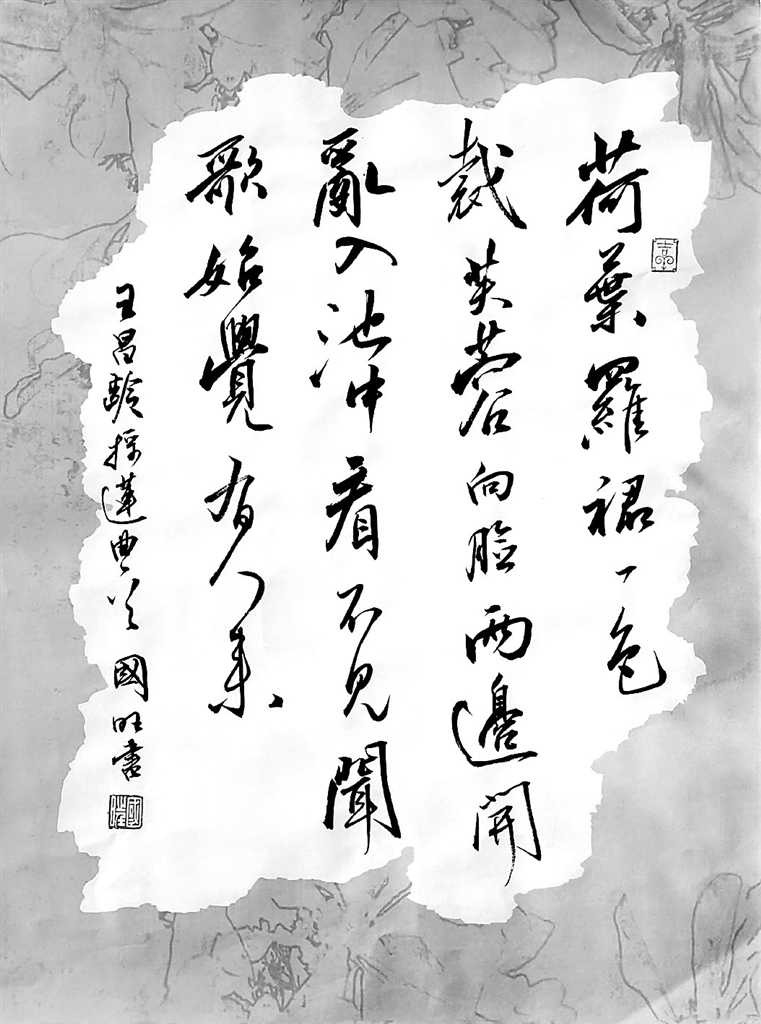 荷葉羅裙一色
裁芙蓉向臉兩邊開
亂入池中看不見聞
歌始覺有人来
王昌齡採蓮曲
國旺書
國旺